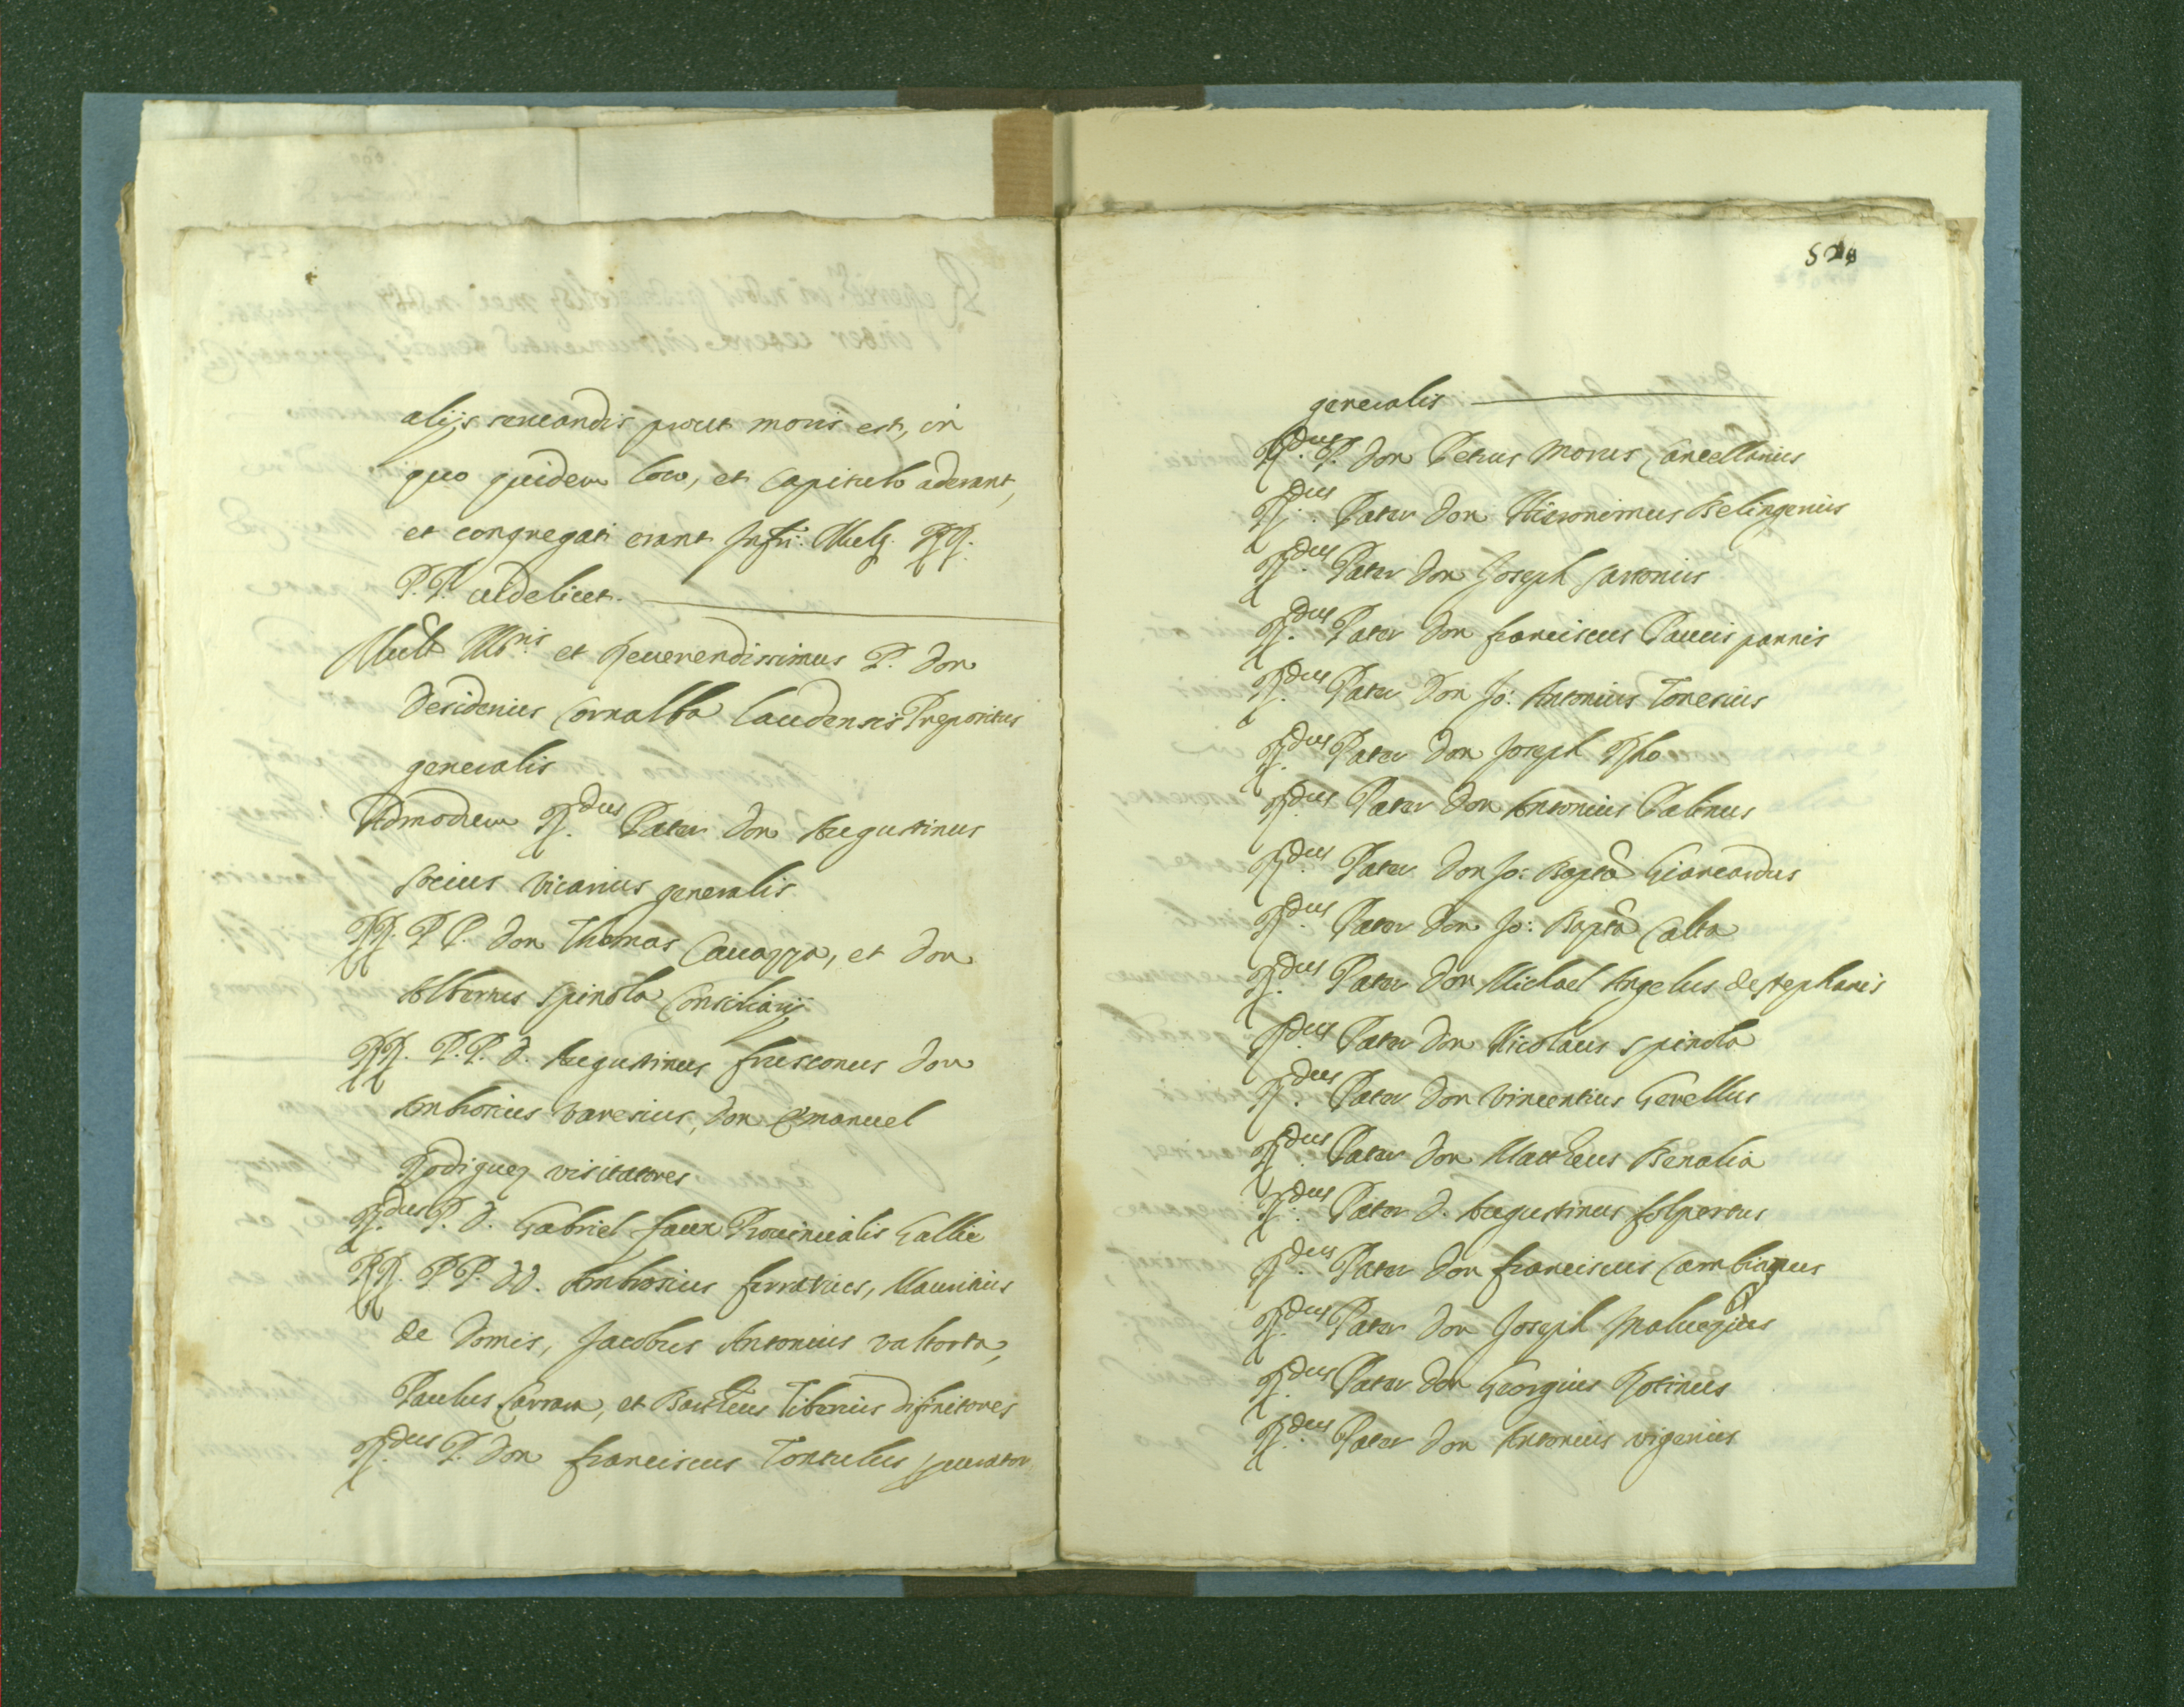 alijs seruandis prout moris est, in
quo quidem loco, et Capitulo aderant,
et congregati erant Infri: Mult. RR.
P.P. uidelicet.
Mult Ill.ris et Reuerendissimus P. Don
Desiderius Cornalba laudensis Prepositus
generalis
Admodum R.dus Pater Don Augustinus
socius Vicarius generalis
RR. P P. Don Thomas Cauazza, et Don
Albertus Spinola Consiliarij
RR. P.P. D. Augustinus fusconus Don
Ambrosius Varesius, Don Emanuel
Rodiguez visitatores
R.dus P. D. Gabriel faux Prouincialis Gallie
RR. P P. DD. Ambrosius ferrarius, Mauritius
de Domis, Jacobus Antonius valtorta,
Paulus Carrara, et Bartheus Tiberius difinitores
R.dus P. Don franciscus Tortulus
generalis
R.dus P. Don Petrus Morus Cancellarius
R.dus Pater Don Hieronimus Belingerius
R.dus Pater Don Joseph Cattonius
R.dus Pater Don franciscus Paucis pannis
R.dus Pater Don Jo: Antonius Toresius
R.dus Pater Don Joseph Rho
R.dus Pater Don Antonius Palinus
R.dus Pater Don Jo: Bapta Giancardus
R.dus Pater Don Jo: Bapta Calta
R.dus Pater Don Michael Angelus de stephanis
R.dus Pater Don Nicolaus Spinola
R.dus Pater Don Vincentius Gerellus
R.dus Pater Don Mattheus Benalia
R.dus Pater D. Augustinus folpertus
R.dus Pater Don franciscus Cambiaqus
R.dus Pater Don Joseph
R.dus Pater Don Georgius Rotinus
R.dus Pater Don Antonius vigerius